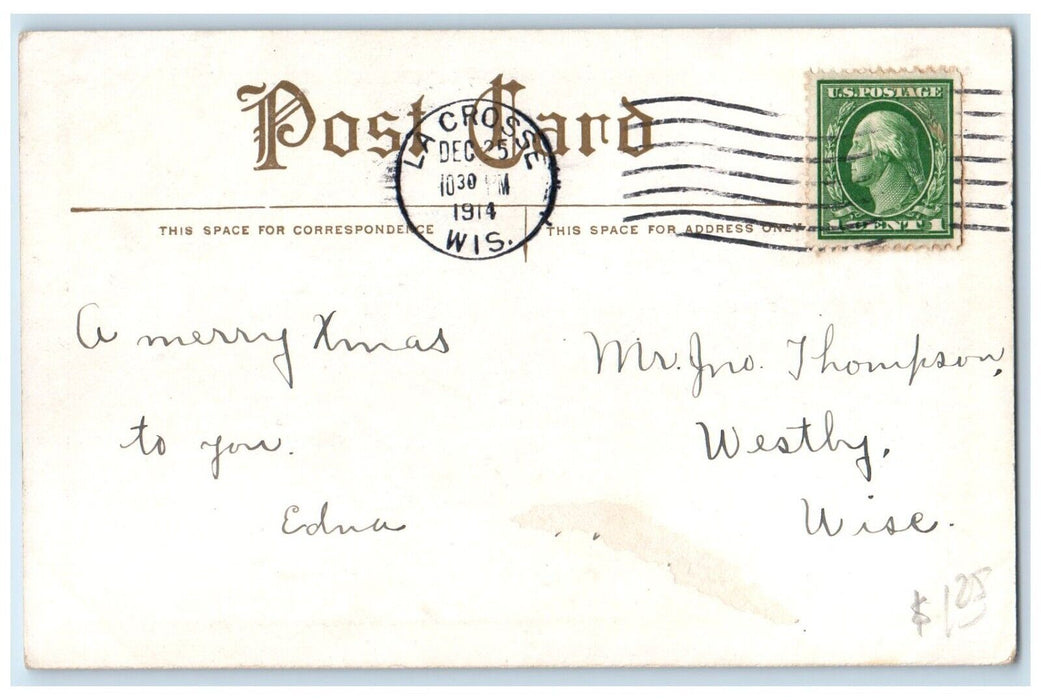 Post Card
U.S. POSTAGE
LA CROSSE
DEC 25
10 30 M
1914
WIS.
CENT 1
THIS SPACE FOR CORRESPONDENCE
THIS SPACE FOR ADDRESS ONLY
A merry Xmas
to you.
Edna
Mr. Jno. Thompson,
Westby,
Wisc.
$1 25